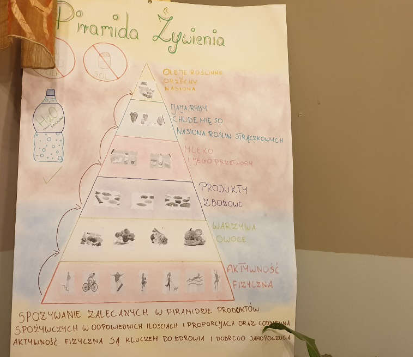 Piramida Żywienia
OLEJE ROŚLINNE
ORZECHY
NASIONA
CHUDE MIĘSO
NASIONA ROŚLIN STRĄCZKOWYCH
MLEKO
PRODUKTY
ZBOŻOWE
WARZYWA
OWOCE
AKTYWNOŚĆ
FIZYCZNA
SPOŻYWANIE ZALECANYCH W PIRAMIDZIE PRODUKTÓW
SPOŻYWCZYCH W ODPOWIEDNICH ILOŚCIACH I PROPORCJACH ORAZ CODZIENNA
AKTYWNOŚĆ FIZYCZNA SĄ KLUCZEM DO ZDROWIA I DOBREGO SAMOPOCZUCIA